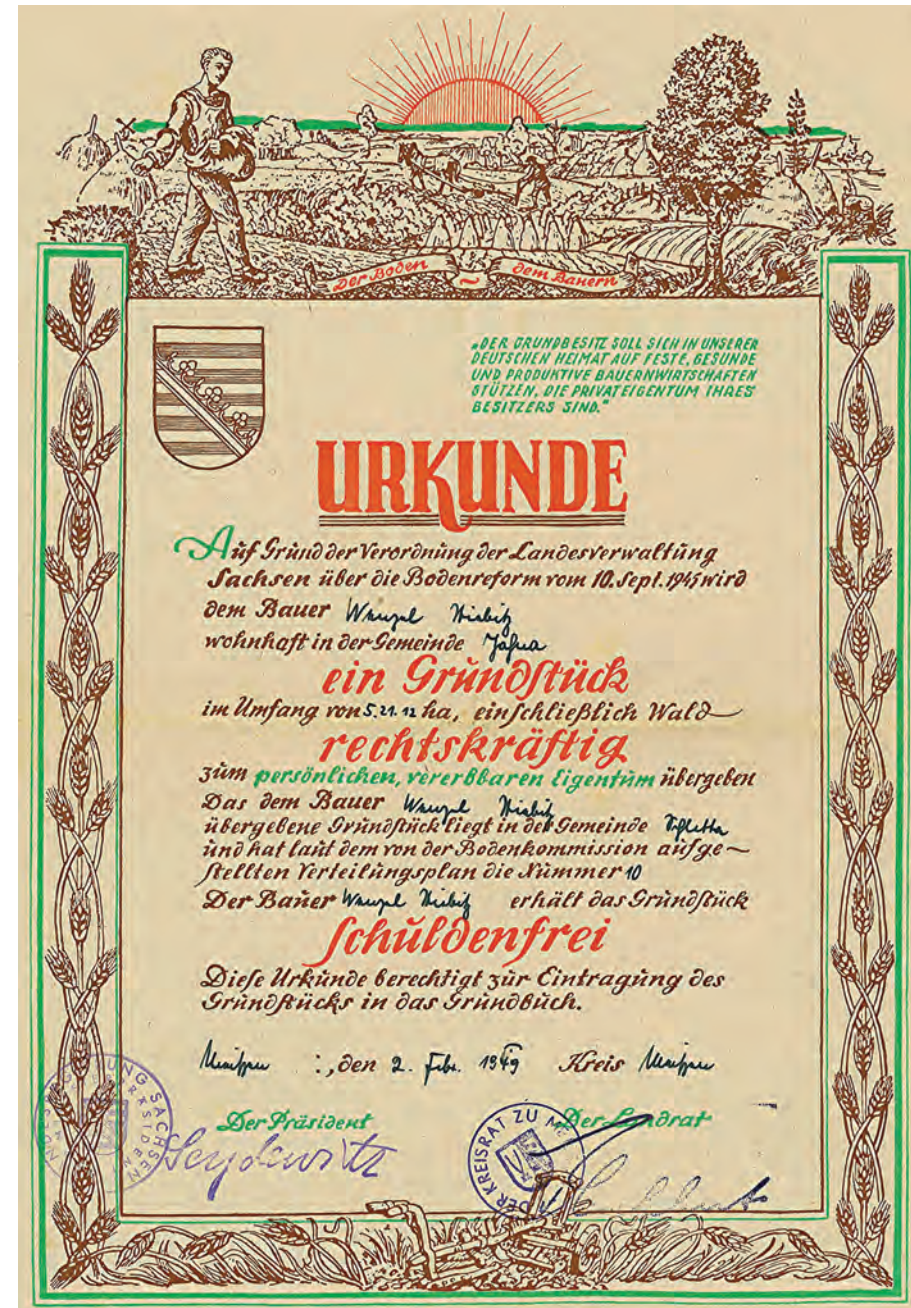 Der Boden ~ dem Bauern
„DER GRUNDBESITZ SOLL SICH IN UNSERER
DEUTSCHEN HEIMAT AUF FESTE, GESUNDE
UND PRODUKTIVE BAUERNWIRTSCHAFTEN
STÜTZEN, DIE PRIVATEIGENTUM IHRES
BESITZERS SIND."
URKUNDE
Auf Grund der Verordnung der Landesverwaltung
Sachsen über die Bodenreform vom 10. Sept. 1945 wird
dem Bauer Wenzel
wohnhaft in der Gemeinde Jahna
ein Grundstück
im Umfang von 5.21.12 ha, einschließlich Wald
rechtskräftig
zum persönlichen, vererbbaren Eigentum übergeben
Das dem Bauer Wenzel
übergebene Grundstück liegt in der Gemeinde
und hat laut dem von der Bodenkommission aufge-
stellten Verteilungsplan die Nummer 10
Der Bauer Wenzel erhält das Grundstück
schuldenfrei
Diese Urkunde berechtigt zur Eintragung des
Grundstücks in das Grundbuch.
Meißen :, den 2. Febr. 1949 Kreis Meißen
Der Präsident Der Landrat
Seydewitz
SACHSEN
DER KREISRAT ZU